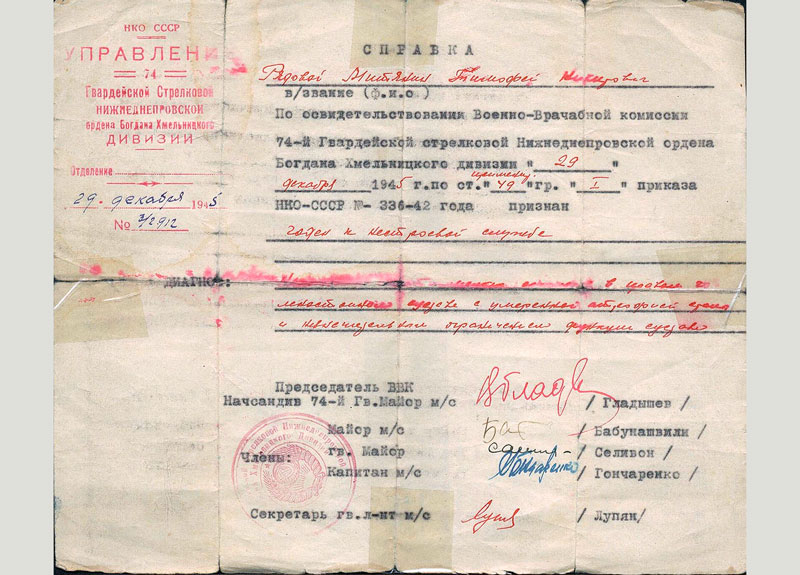 НКО СССР
УПРАВЛЕНИ
74
Гвардейской Стрелковой
НИЖНЕДНЕПРОВСКОЙ
ордена Богдана Хмельницкого
ДИВИЗИИ
Отделение
29 декабря 1945
№ 3/2912
СПРАВКА
Рядовой Митякин Тимофей
в/звание (ф.и.о)
По освидетельствовании Военно-Врачабной комиссии
74-й Гвардейской стрелковой Нижнеднепровской ордена
Богдана Хмельницкого дивизии "29"
декабря 1945 г. по ст. "49" гр. "I" приказа
НКО-СССР №- 336-42 года признан
годен к нестроевой службе
ДИАГНОЗ: в
сустава с умеренной атрофией
и незначительным ограничением функции сустава
Председатель ВВК
Начсандив 74-й Гв.Майор м/с / Гладышев /
Майор м/с / Бабунашвили /
Члены: гв. Майор / Селивон /
Капитан м/с Гончаренко / Гончаренко /
Секретарь гв.л-нт м/с / Лупян/